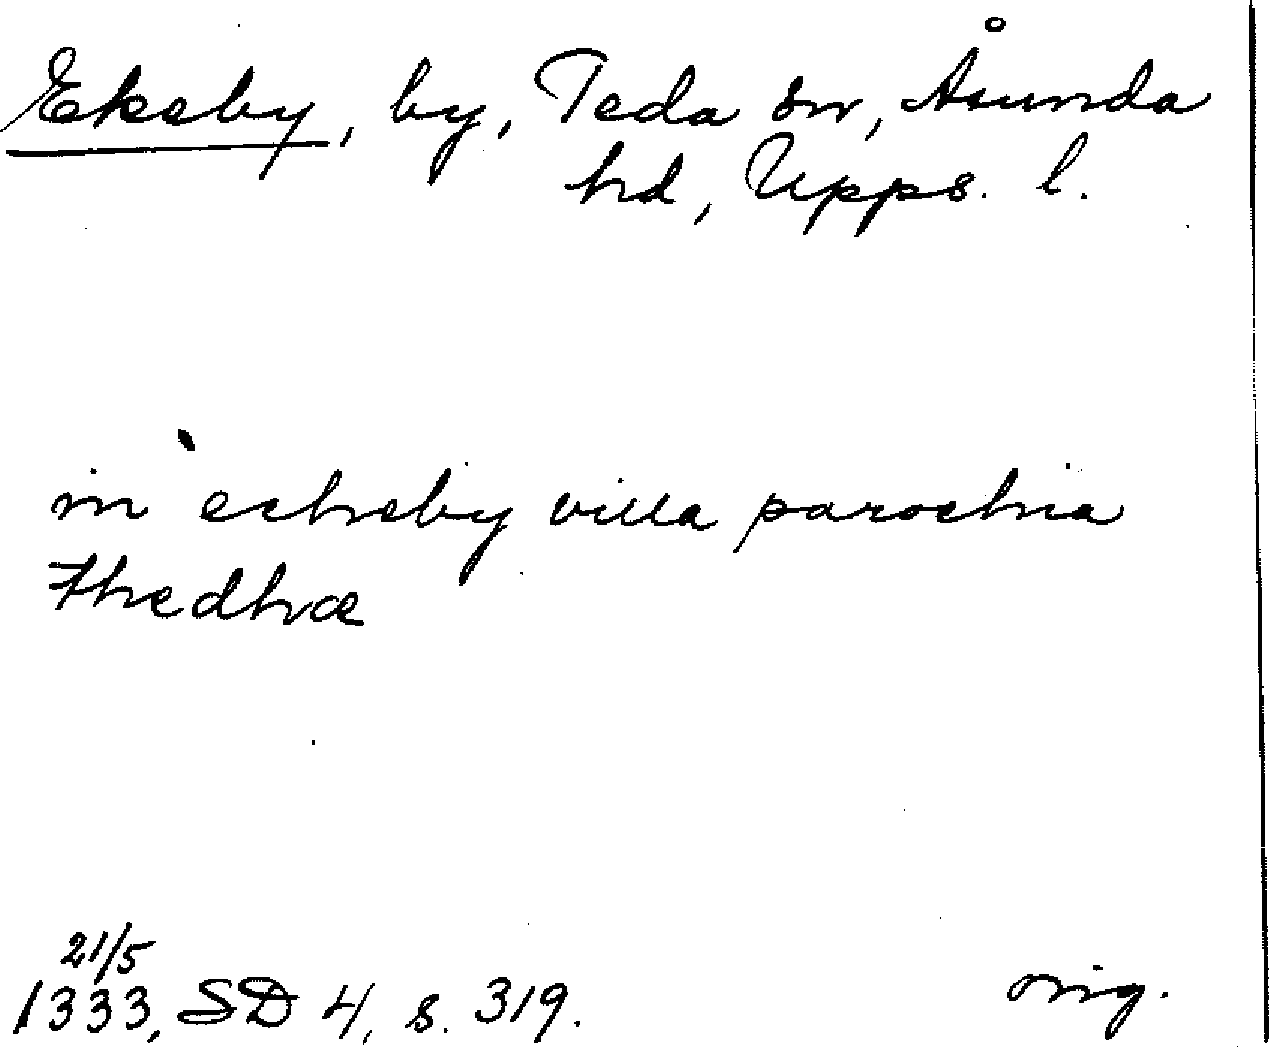 Ekeby, by, Teda sn, Åsunda
hd, Upps. l.
in echeby villa parochia
Thedhæ
21/5
1333, SD 4, s. 319.
orig.